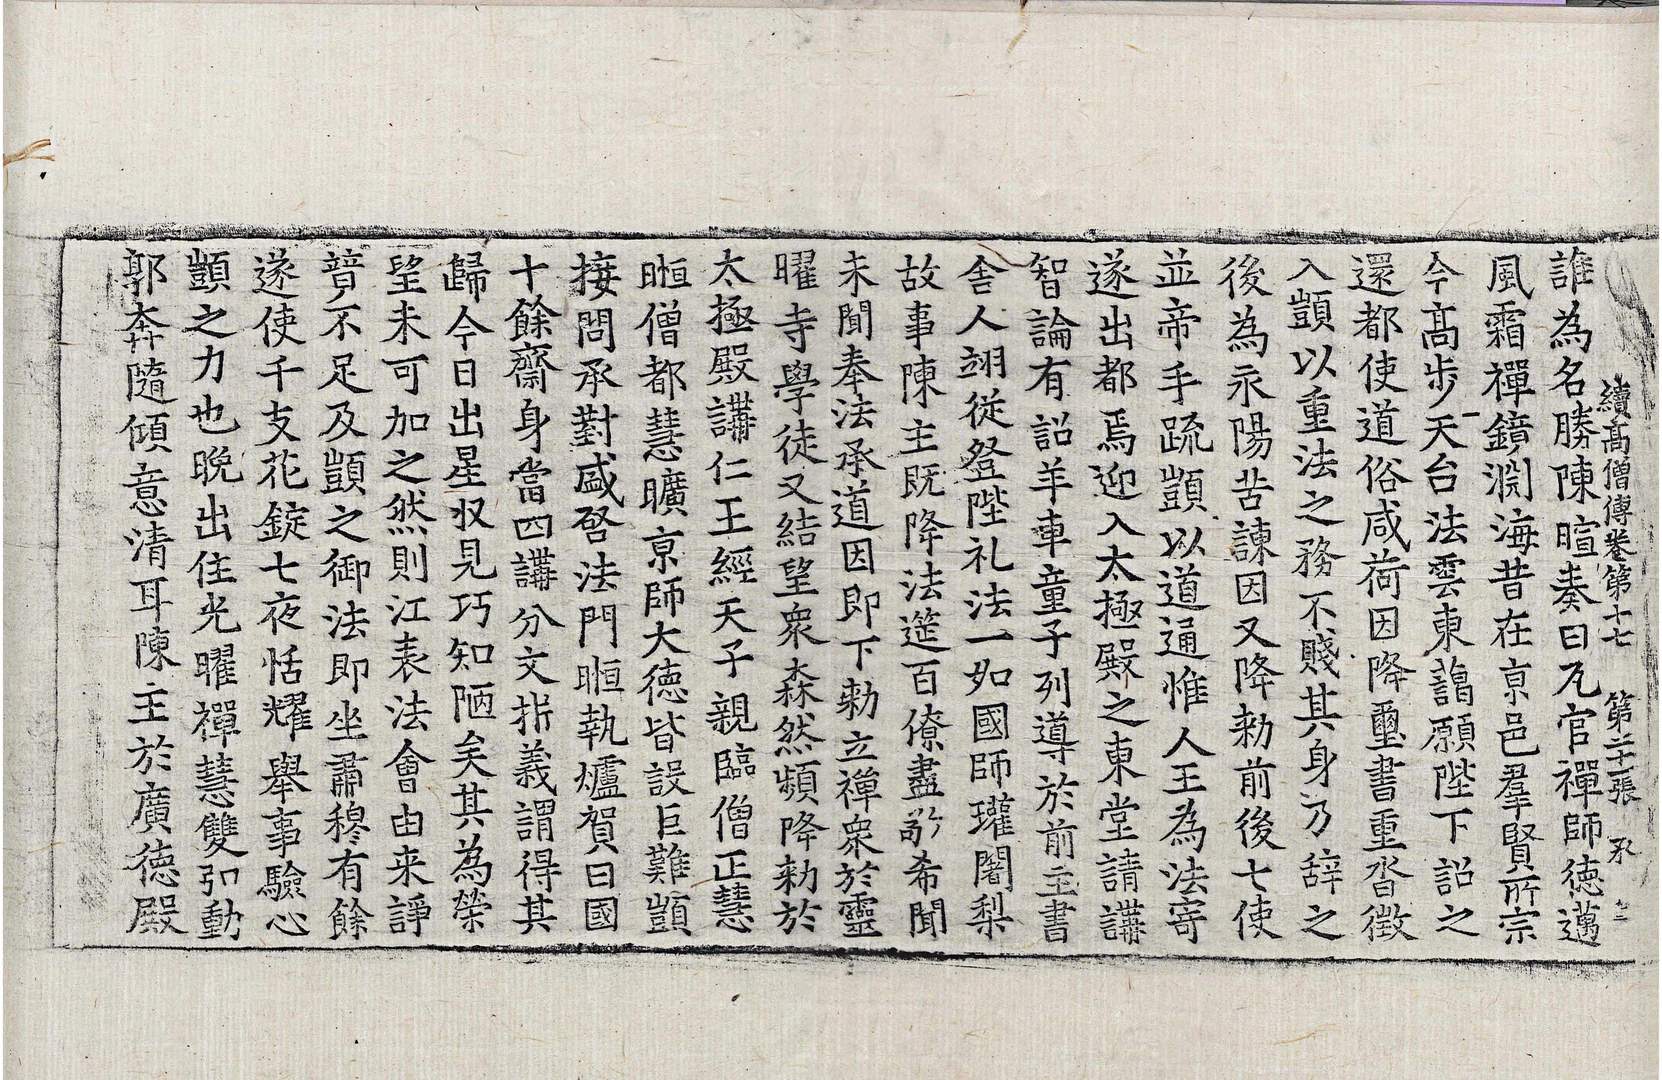 續高僧傳卷第十七 第二十一張 承
誰為名勝陳暄奏曰瓦官禪師德邁
風霜禪鏡淵海昔在京邑羣賢所宗
今高步天台法雲東藹願陛下詔之
還都使道俗咸荷因降璽書重沓徵
入顗以重法之務不賤其身乃辞之
後為永陽苦諫因又降勅前後七使
並帝手疏顗以道通惟人王為法寄
遂出都焉迎入太極殿之東堂請講
智論有詔羊車童子列導於前主書
舍人翊從登陛礼法一如國師璀闍梨
故事陳主既降法筵百僚盡敬希聞
未聞奉法承道因即下勅立禪衆於靈
曜寺學徒又結望衆森然頻降勅於
太極殿講仁王經天子親臨僧正慧
暅僧都慧曠京師大德皆設巨難顗
接問承對盛啓法門暅執爐賀曰國
十餘齋身當四講分文析義謂得其
歸今日出星收見巧知陋矣其為榮
望未可加之然則江表法會由来諍
競不足及顗之御法即坐肅穆有餘
遂使千支花錠七夜恬耀舉事驗心
顗之力也晚出住光曜禪慧雙弘動
郭奔隨傾意清耳陳主於廣德殿